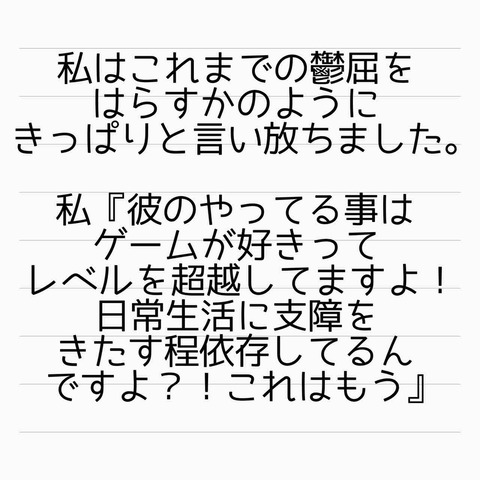 私はこれまでの鬱屈を
はらすかのように
きっぱりと言い放ちました。
私『彼のやってる事は
ゲームが好きって
レベルを超越してますよ！
日常生活に支障を
きたす程依存してるん
ですよ？！これはもう』